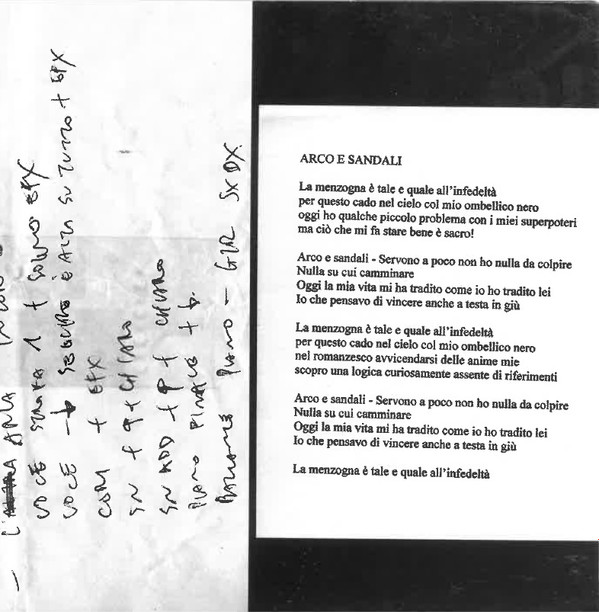 VOCE STROFA 1 + SOLINO EFX
VOCE → SECONDO È ALZA SU TUTTO + EFX
CORI + EFX
SN + P + CHITARRA
SN ADD + P + CHITARRA
PIANO FINALE + b.
PIANO — GTR SX DX
ARCO E SANDALI
La menzogna è tale e quale all'infedeltà
per questo cado nel cielo col mio ombellico nero
oggi ho qualche piccolo problema con i miei superpoteri
ma ciò che mi fa stare bene è sacro!
Arco e sandali - Servono a poco non ho nulla da colpire
Nulla su cui camminare
Oggi la mia vita mi ha tradito come io ho tradito lei
Io che pensavo di vincere anche a testa in giù
La menzogna è tale e quale all'infedeltà
per questo cado nel cielo col mio ombellico nero
nel romanzesco avvicendarsi delle anime mie
scopro una logica curiosamente assente di riferimenti
Arco e sandali - Servono a poco non ho nulla da colpire
Nulla su cui camminare
Oggi la mia vita mi ha tradito come io ho tradito lei
Io che pensavo di vincere anche a testa in giù
La menzogna è tale e quale all'infedeltà